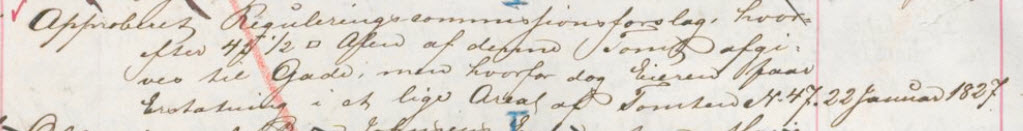 Approberet Regulerings commissionsforslag, hvor=
efter 45 1/2 □ Alen af denne Tomt afgi-
ves til Gade, men hvorfor dog Eieren faar
Erstatning i et lige Areal af Tomten N. 47. 22 Januar 1827.